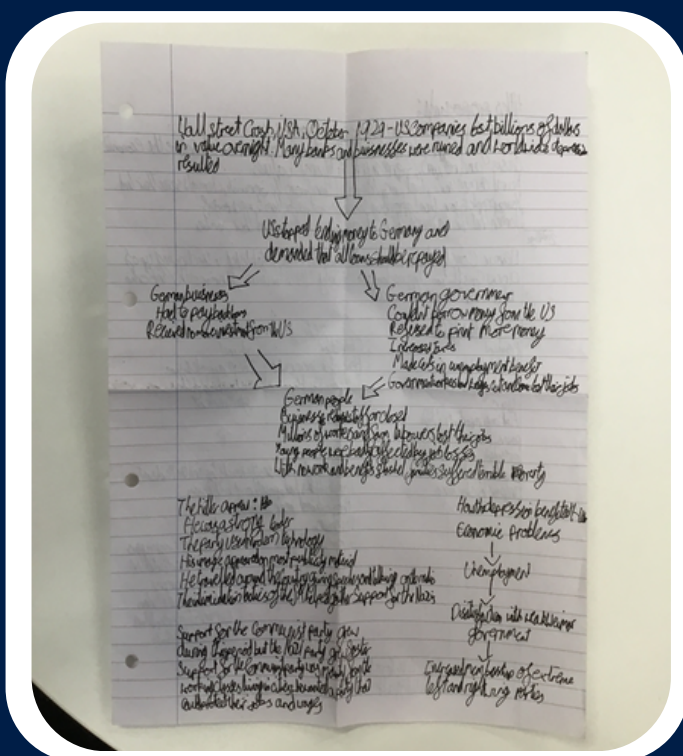 Wall street Crash, USA, October 1929 - US companies lost billions of dollars
in value overnight. Many banks and businesses were ruined and worldwide depression
resulted
US stopped lending money to Germany and
demanded that all loans should be repayed
German business
Had to pay back loans
Received no more investment from the US
German government
Couldn't borrow money from the US
Refused to print more money
Increased taxes
Made cuts in unemployment benefit
Government workers had wages cut and some lost their jobs
German people
Businesses or closed
Millions of workers and farm labourers lost their jobs
Young people were badly affected by job losses
With no work and benefits slashed families suffered terrible Poverty
The Hitler appeal:
He was a strong leader
The party used modern technology
His image appeared on most publicity material
He travelled around the country giving speeches and talking on the radio
The intimidation tactics of the helped gather Support for the Nazis
Support for the Communist party grew
during the period but the Nazi party grew faster
Support for the Communist party was mainly from the
working classes living in cities who wanted a party that
their jobs and wages
How the depression benefitted
Economic problems
Unemployment
Dissatisfaction with weak Weimar
government
Increased membership of extreme
left and right wing parties